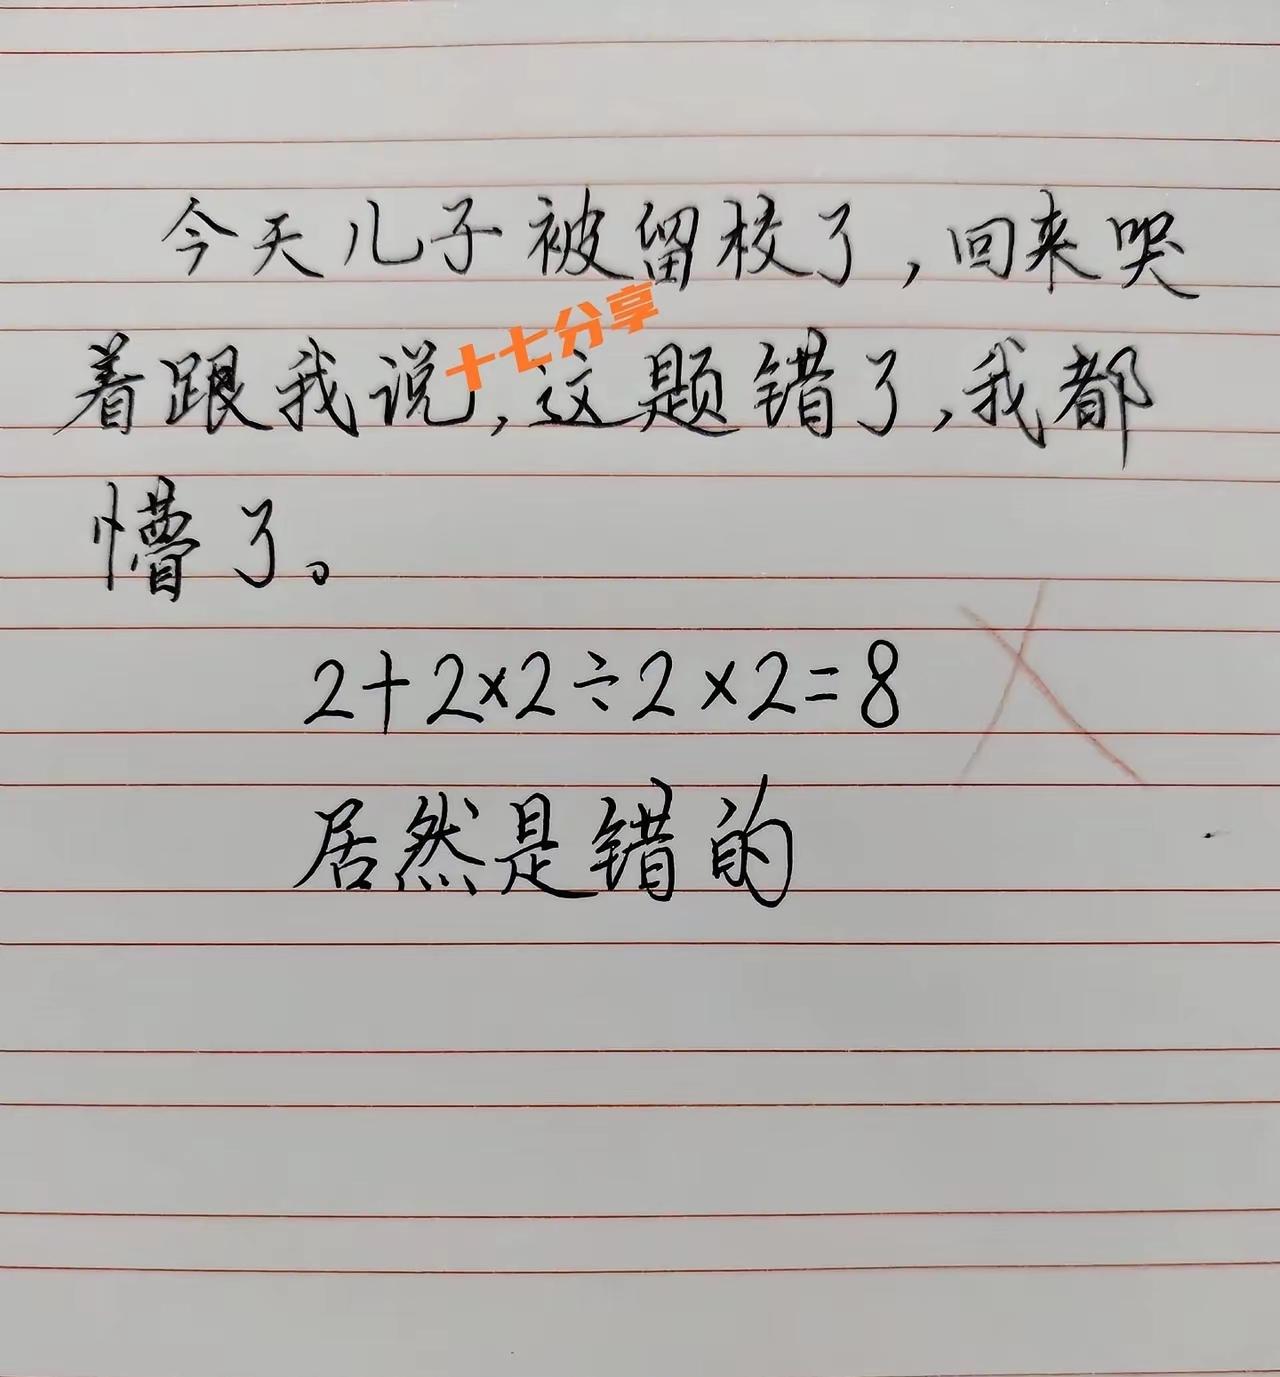 今天儿子被留校了,回来哭
十七分享
着跟我说,这题错了,我都
懵了。
2+2×2÷2×2=8
居然是错的